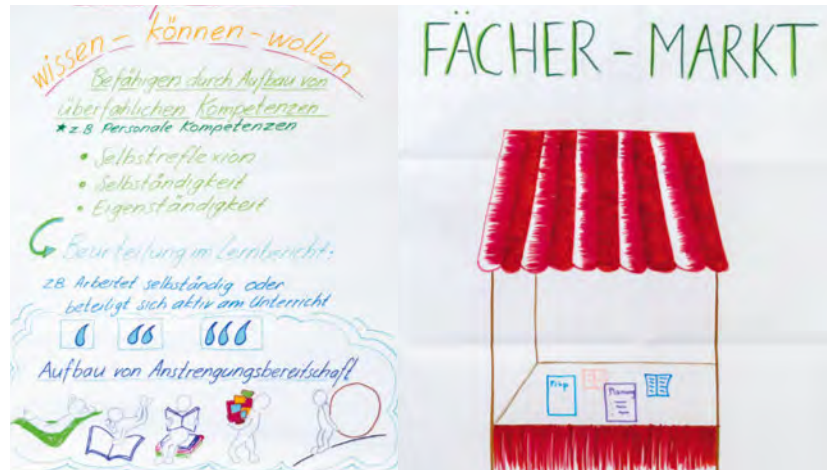 wissen - können - wollen
Befähigen durch Aufbau von
überfahlichen Kompetenzen
★ z.B Personale Kompetenzen
• Selbstreflexion
• Selbständigkeit
• Eigenständigkeit
Beurteilung im Lernbericht:
z.B. Arbeitet selbständig oder
beteiligt sich aktiv am Unterricht
Aufbau von Anstrengungsbereitschaft
FÄCHER - MARKT
Planung